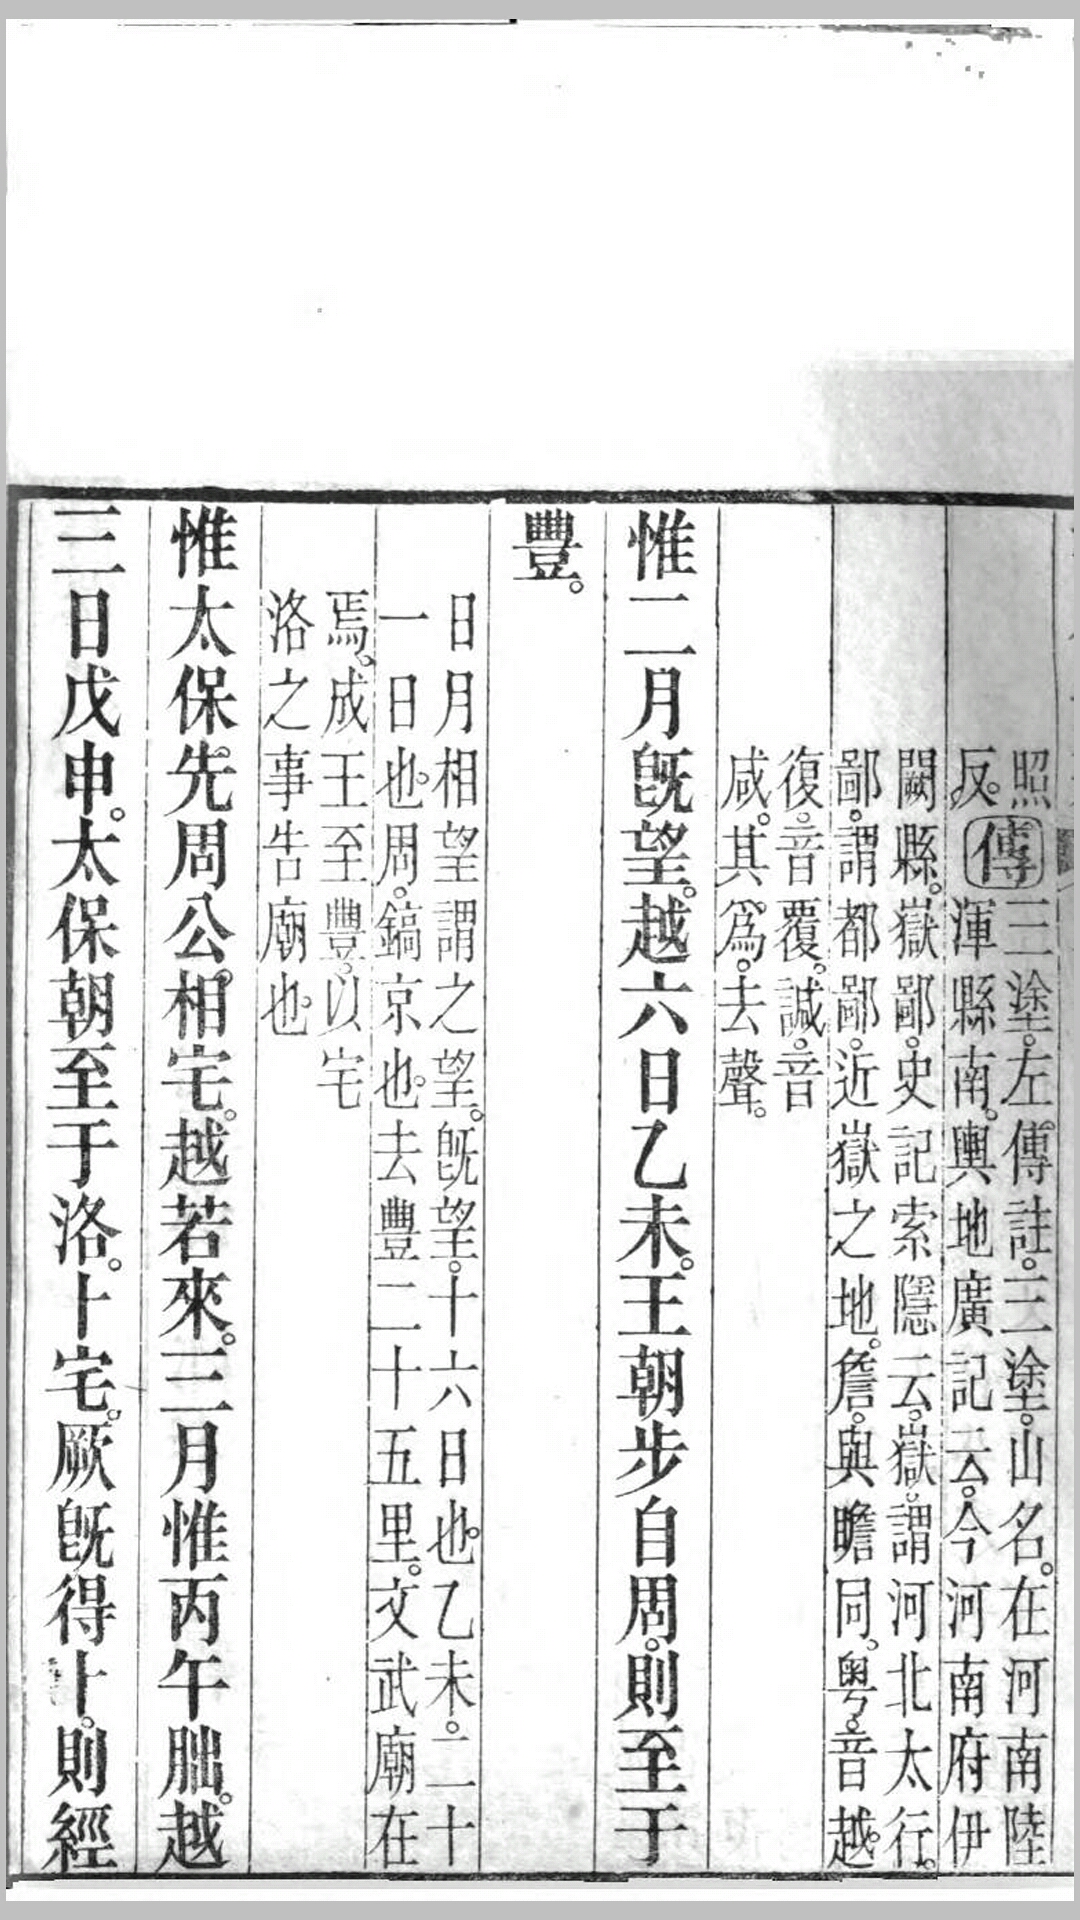 照。三塗。左傳註。三塗。山名。在河南陸
反。傳渾縣南。輿地廣記云。今河南府伊
闕縣。嶽鄙。史記索隱云。嶽。謂河北太行。
鄙。謂都鄙。近嶽之地。詹。與瞻同。粤。音越。
復。音覆。諴。音
咸。其。爲。去聲。
惟二月旣望。越六日乙未。王朝步自周。則至于
豐。
日月相望謂之望。旣望。十六日也。乙未。二十
一日也。周。鎬京也。去豐二十五里。文武廟在
焉。成王至豐。以宅
洛之事告廟也
惟太保先周公相宅。越若來。三月惟丙午朏。越
三日戊申。太保朝至于洛。卜宅。厥旣得卜。則經